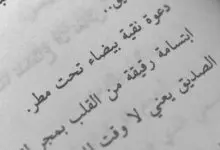 دعوة نقية بيضاء تحت مطر.
ابتسامة رقيقة من القلب بمجر
الصديق يعني لا وقت